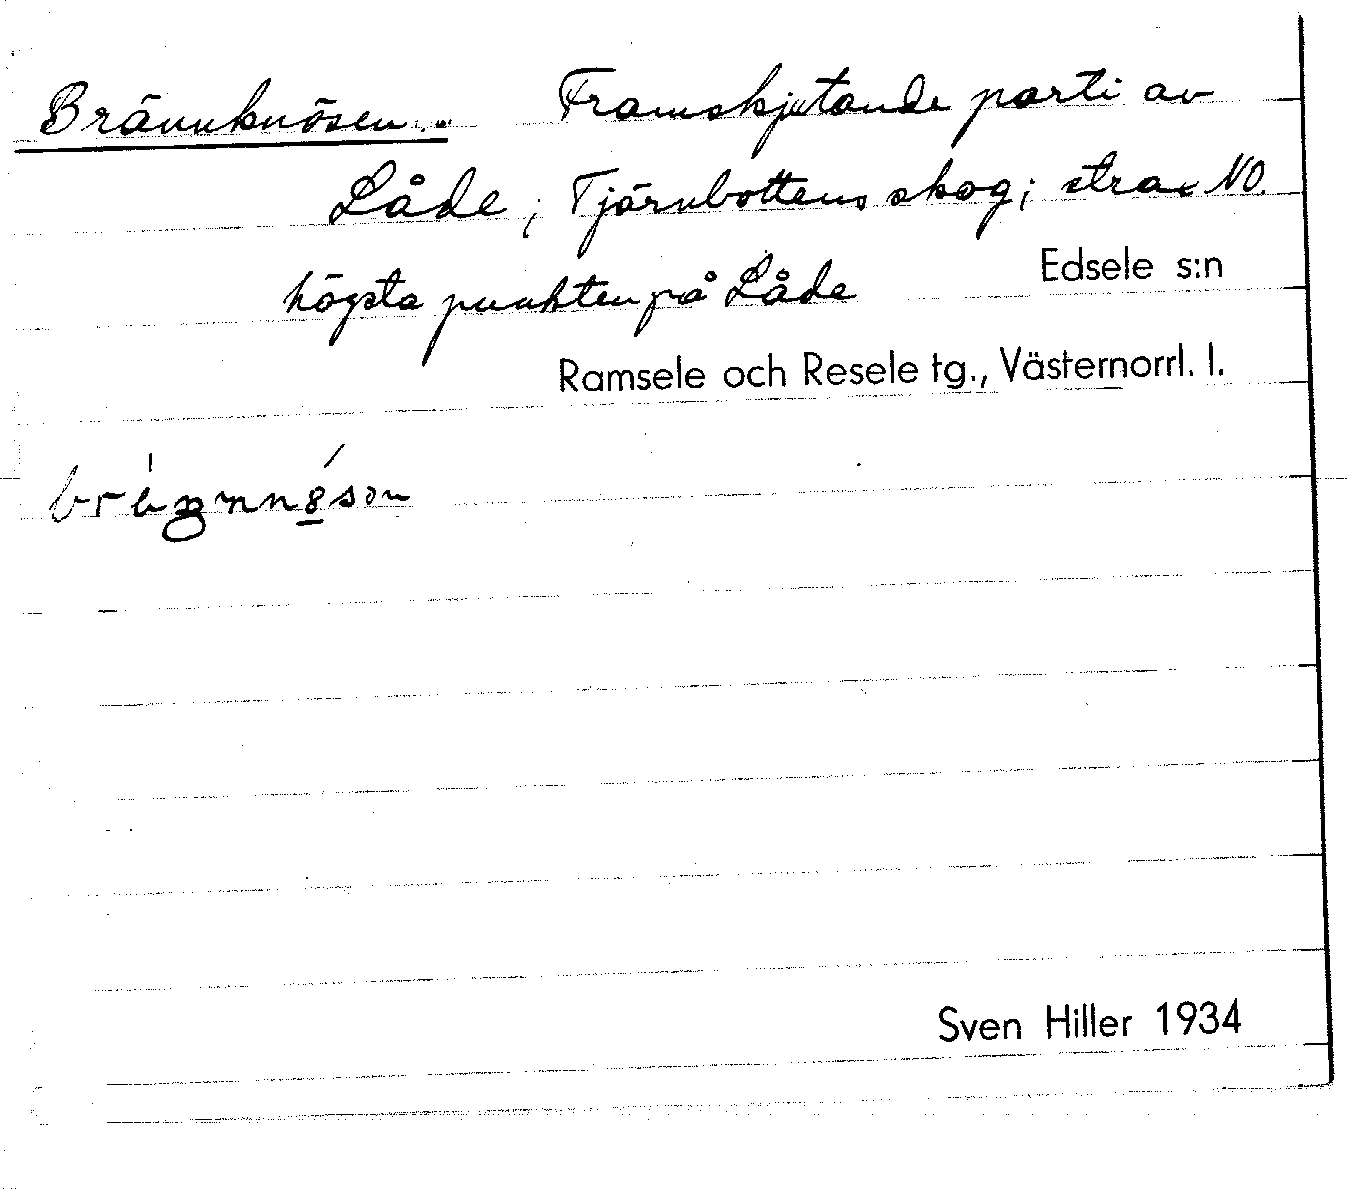 Brännknösen. Framskjutande parti av
Låde, Tjärnbottens skog; strax NO.
högsta punkten på Låde
Edsele s:n
Ramsele och Resele tg., Västernorrl. l.
Sven Hiller 1934